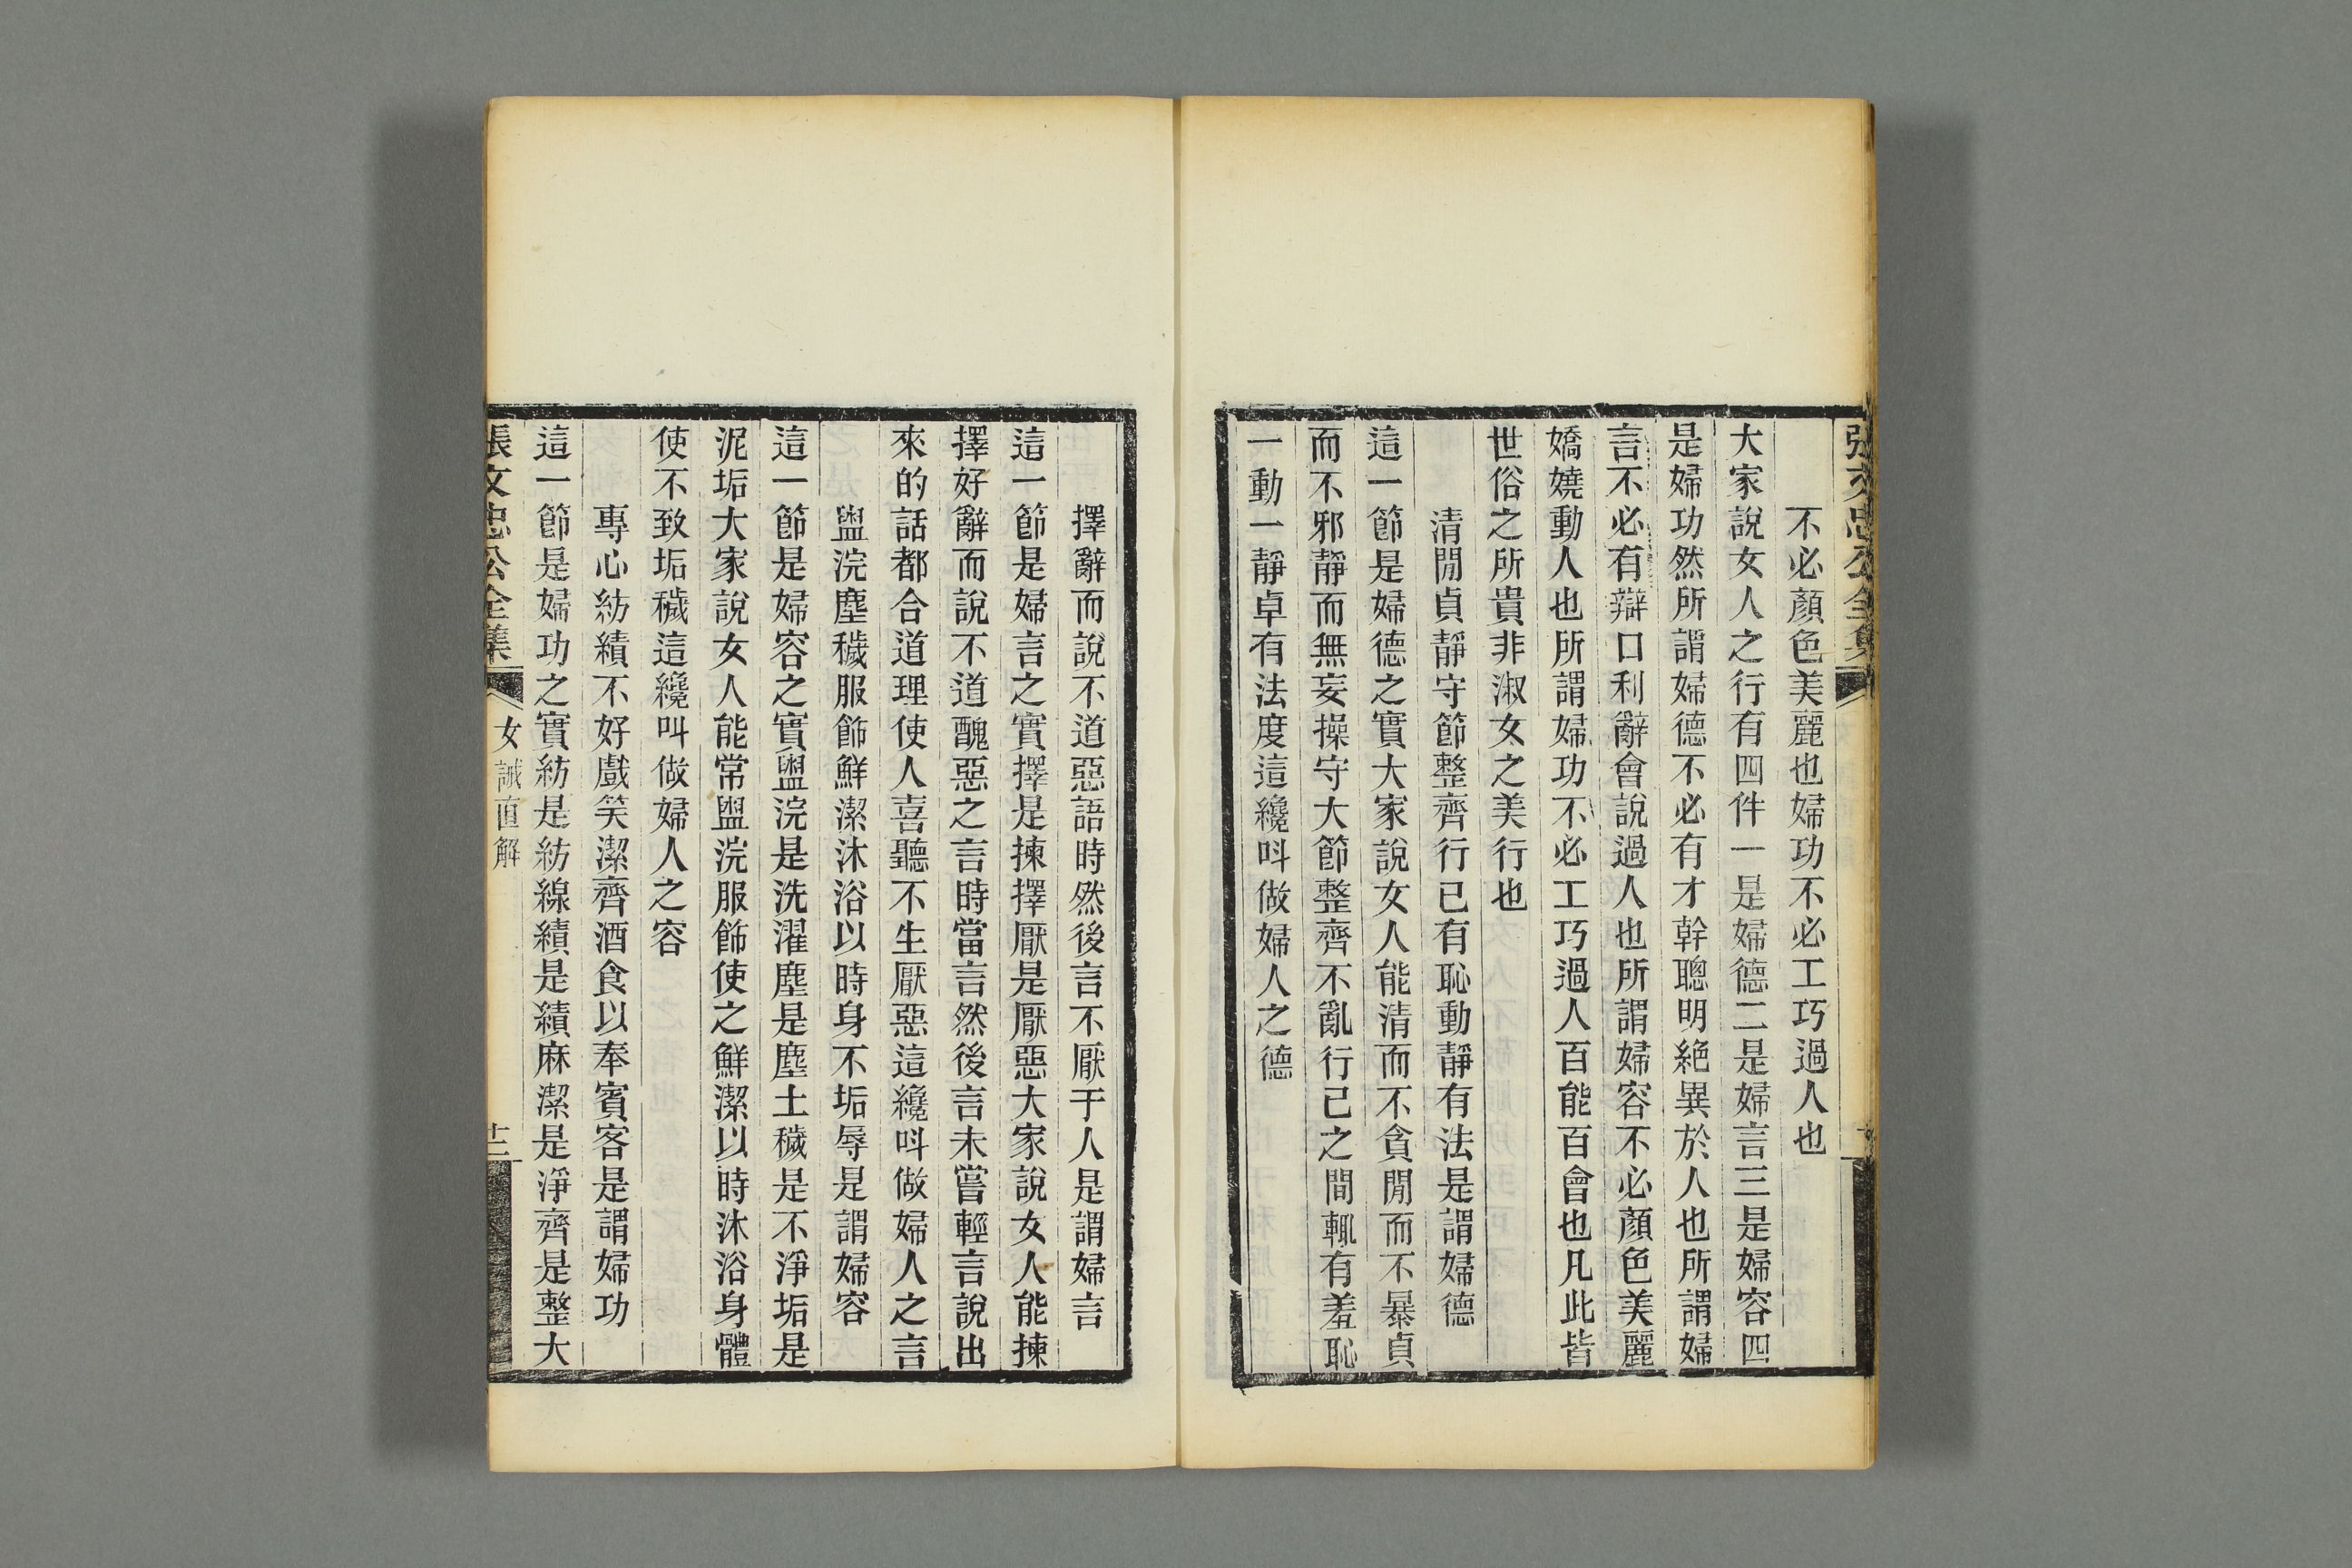 張文忠公全集
不必顏色美麗也婦功不必工巧過人也
大家說女人之行有四件一是婦德二是婦言三是婦容四
是婦功然所謂婦德不必有才幹聰明絶異於人也所謂婦
言不必有辯口利辭會說過人也所謂婦容不必顏色美麗
嬌嬈動人也所謂婦功不必工巧過人百能百會也凡此皆
世俗之所貴非淑女之美行也
清閒貞靜守節整齊行已有恥動靜有法是謂婦德
這一節是婦德之實大家說女人能清而不貪閒而不暴貞
而不邪靜而無妄操守大節整齊不亂行己之間輒有羞恥
一動一靜卓有法度這纔呌做婦人之德
擇辭而說不道惡語時然後言不厭于人是謂婦言
這一節是婦言之實擇是揀擇厭是厭惡大家說女人能揀
擇好辭而說不道醜惡之言時當言然後言未嘗輕言說出
來的話都合道理使人喜聽不生厭惡這纔呌做婦人之言
盥浣塵穢服飾鮮潔沐浴以時身不垢辱是謂婦容
這一節是婦容之實盥浣是洗濯塵是塵土穢是不淨垢是
泥垢大家說女人能常盥浣服飾使之鮮潔以時沐浴身體
使不致垢穢這纔叫做婦人之容
專心紡績不好戲笑潔齊酒食以奉賓客是謂婦功
這一節是婦功之實紡是紡線績是績麻潔是淨齊是整大
張文忠公全集 女誡直解 十二